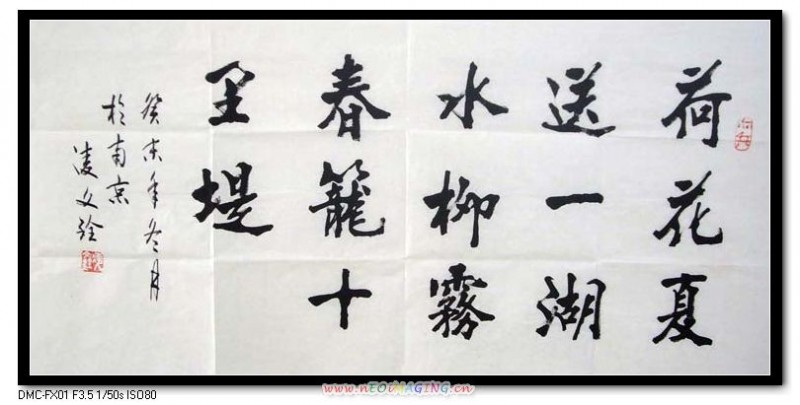 荷花夏
送一湖
水柳霧
春籠十
里堤
癸未年冬月
於南京
凌文
www.nEOiMAGiNG.cn
DMC-FX01 F3.5 1/50s ISO80